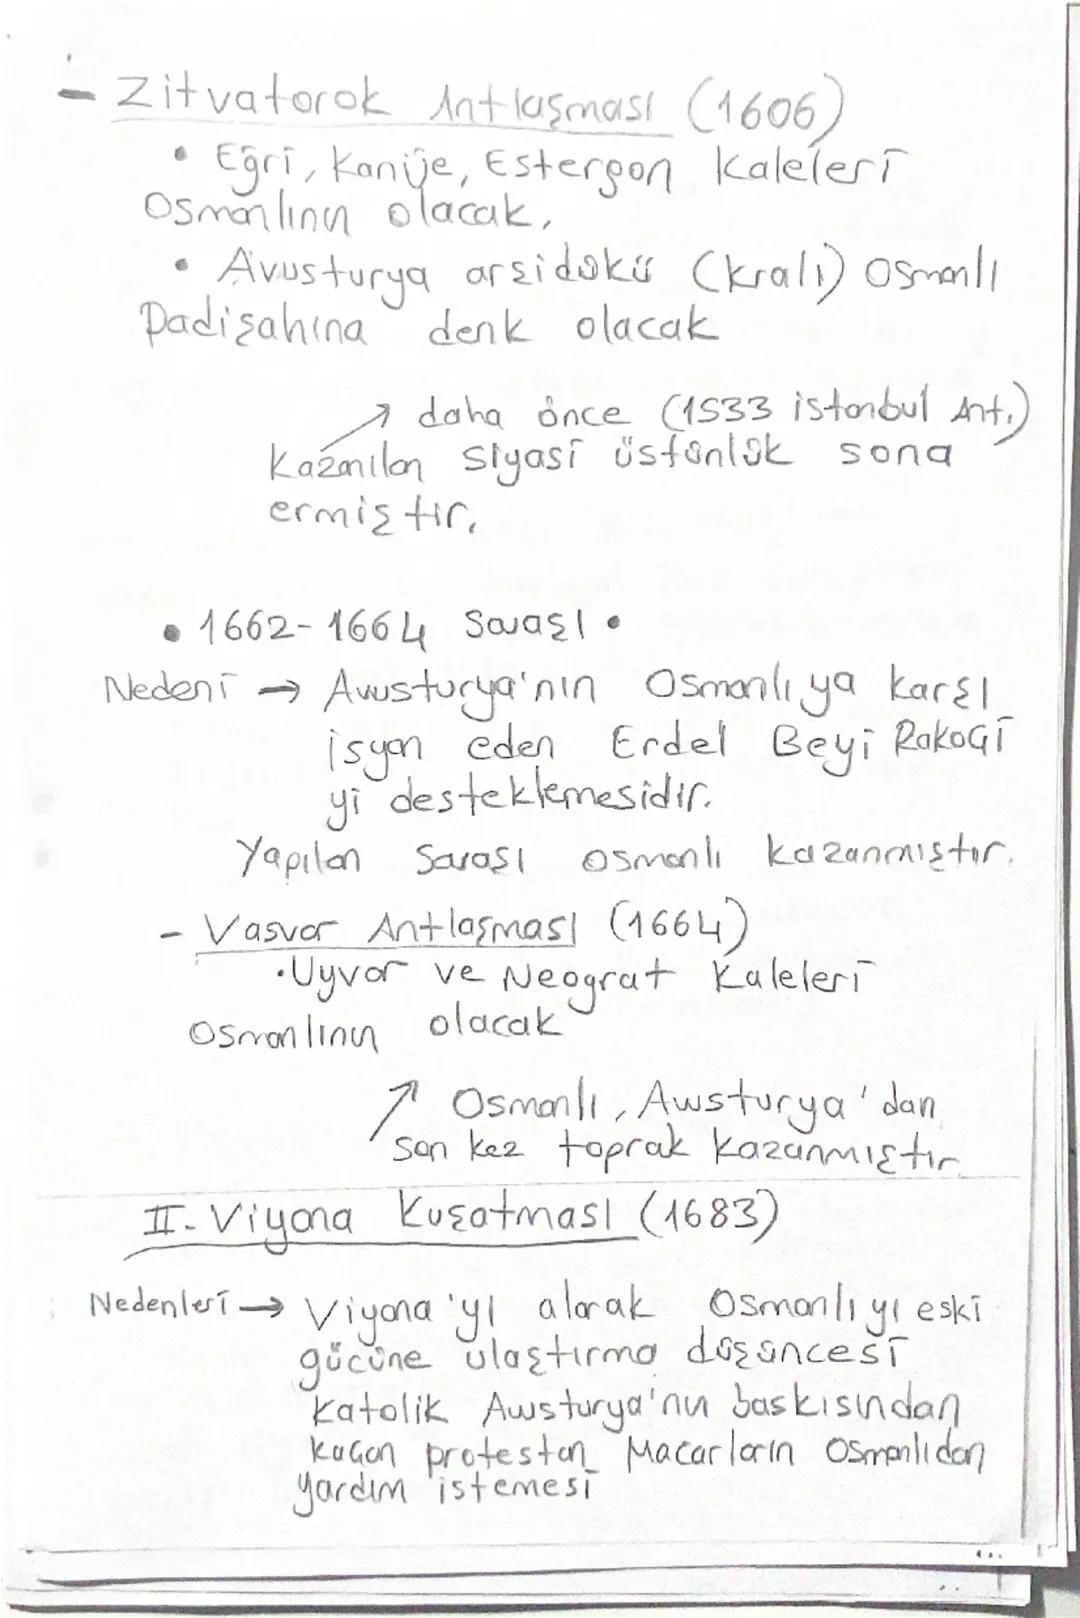 - Zitvatorok Antlaşması (1606)
• Eğri, Kanije, Estergon Kaleleri
Osmanlının olacak,
• Avusturya arşidükü (kralı) Osmanlı
Padişahına denk olacak
↗ daha önce (1533 istanbul Ant.)
Kazanılan siyasi üstünlük sona
ermiştir.
• 1662-1664 Savaşı •
Nedeni → Avusturya'nın Osmanlıya karşı
isyan eden Erdel Beyi RakoGi
yi desteklemesidir.
Yapılan Savaşı Osmanlı kazanmıştır.
- Vasvar Antlaşması (1664)
• Uyvar ve Neograt Kaleleri
Osmanlının olacak
↗ Osmanlı, Avusturya'dan
son kez toprak kazanmıştır
II- Viyana Kuşatması (1683)
Nedenleri → Viyana'yı alarak Osmanlıyı eski
gücüne ulaştırma düşüncesi
Katolik Avusturya'nın baskısından
kaçan protestan Macarların Osmanlıdan
yardım istemesi